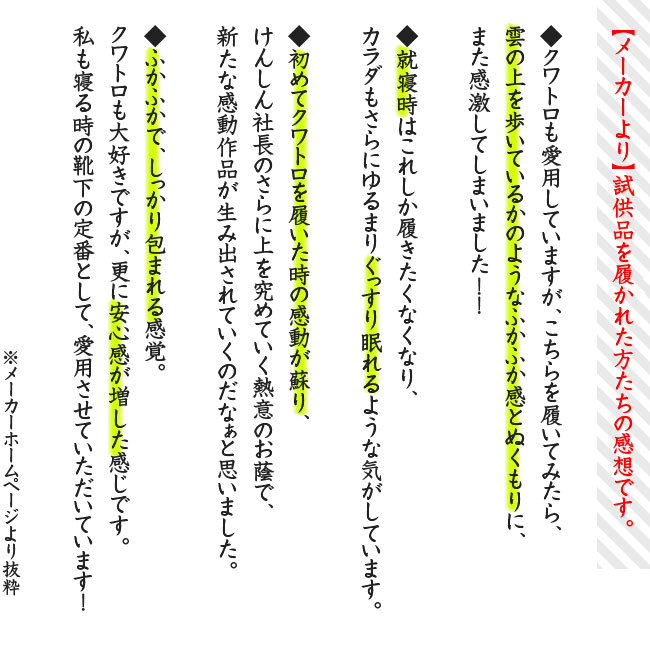 【メーカーより】試供品を履かれた方たちの感想です。
◆クワトロも愛用していますが、こちらを履いてみたら、
雲の上を歩いているかのようなふかふか感とぬくもりに、
また感激してしまいました！！
◆就寝時はこれしか履きたくなくなり、
カラダもさらにゆるまりぐっすり眠れるような気がしています。
◆初めてクワトロを履いた時の感動が蘇り、
けんしん社長のさらに上を究めていく熱意のお蔭で、
新たな感動作品が生み出されていくのだなぁと思いました。
◆ふかふかで、しっかり包まれる感覚。
クワトロも大好きですが、更に安心感が増した感じです。
私も寝る時の靴下の定番として、愛用させていただいています！
※メーカーホームページより抜粋